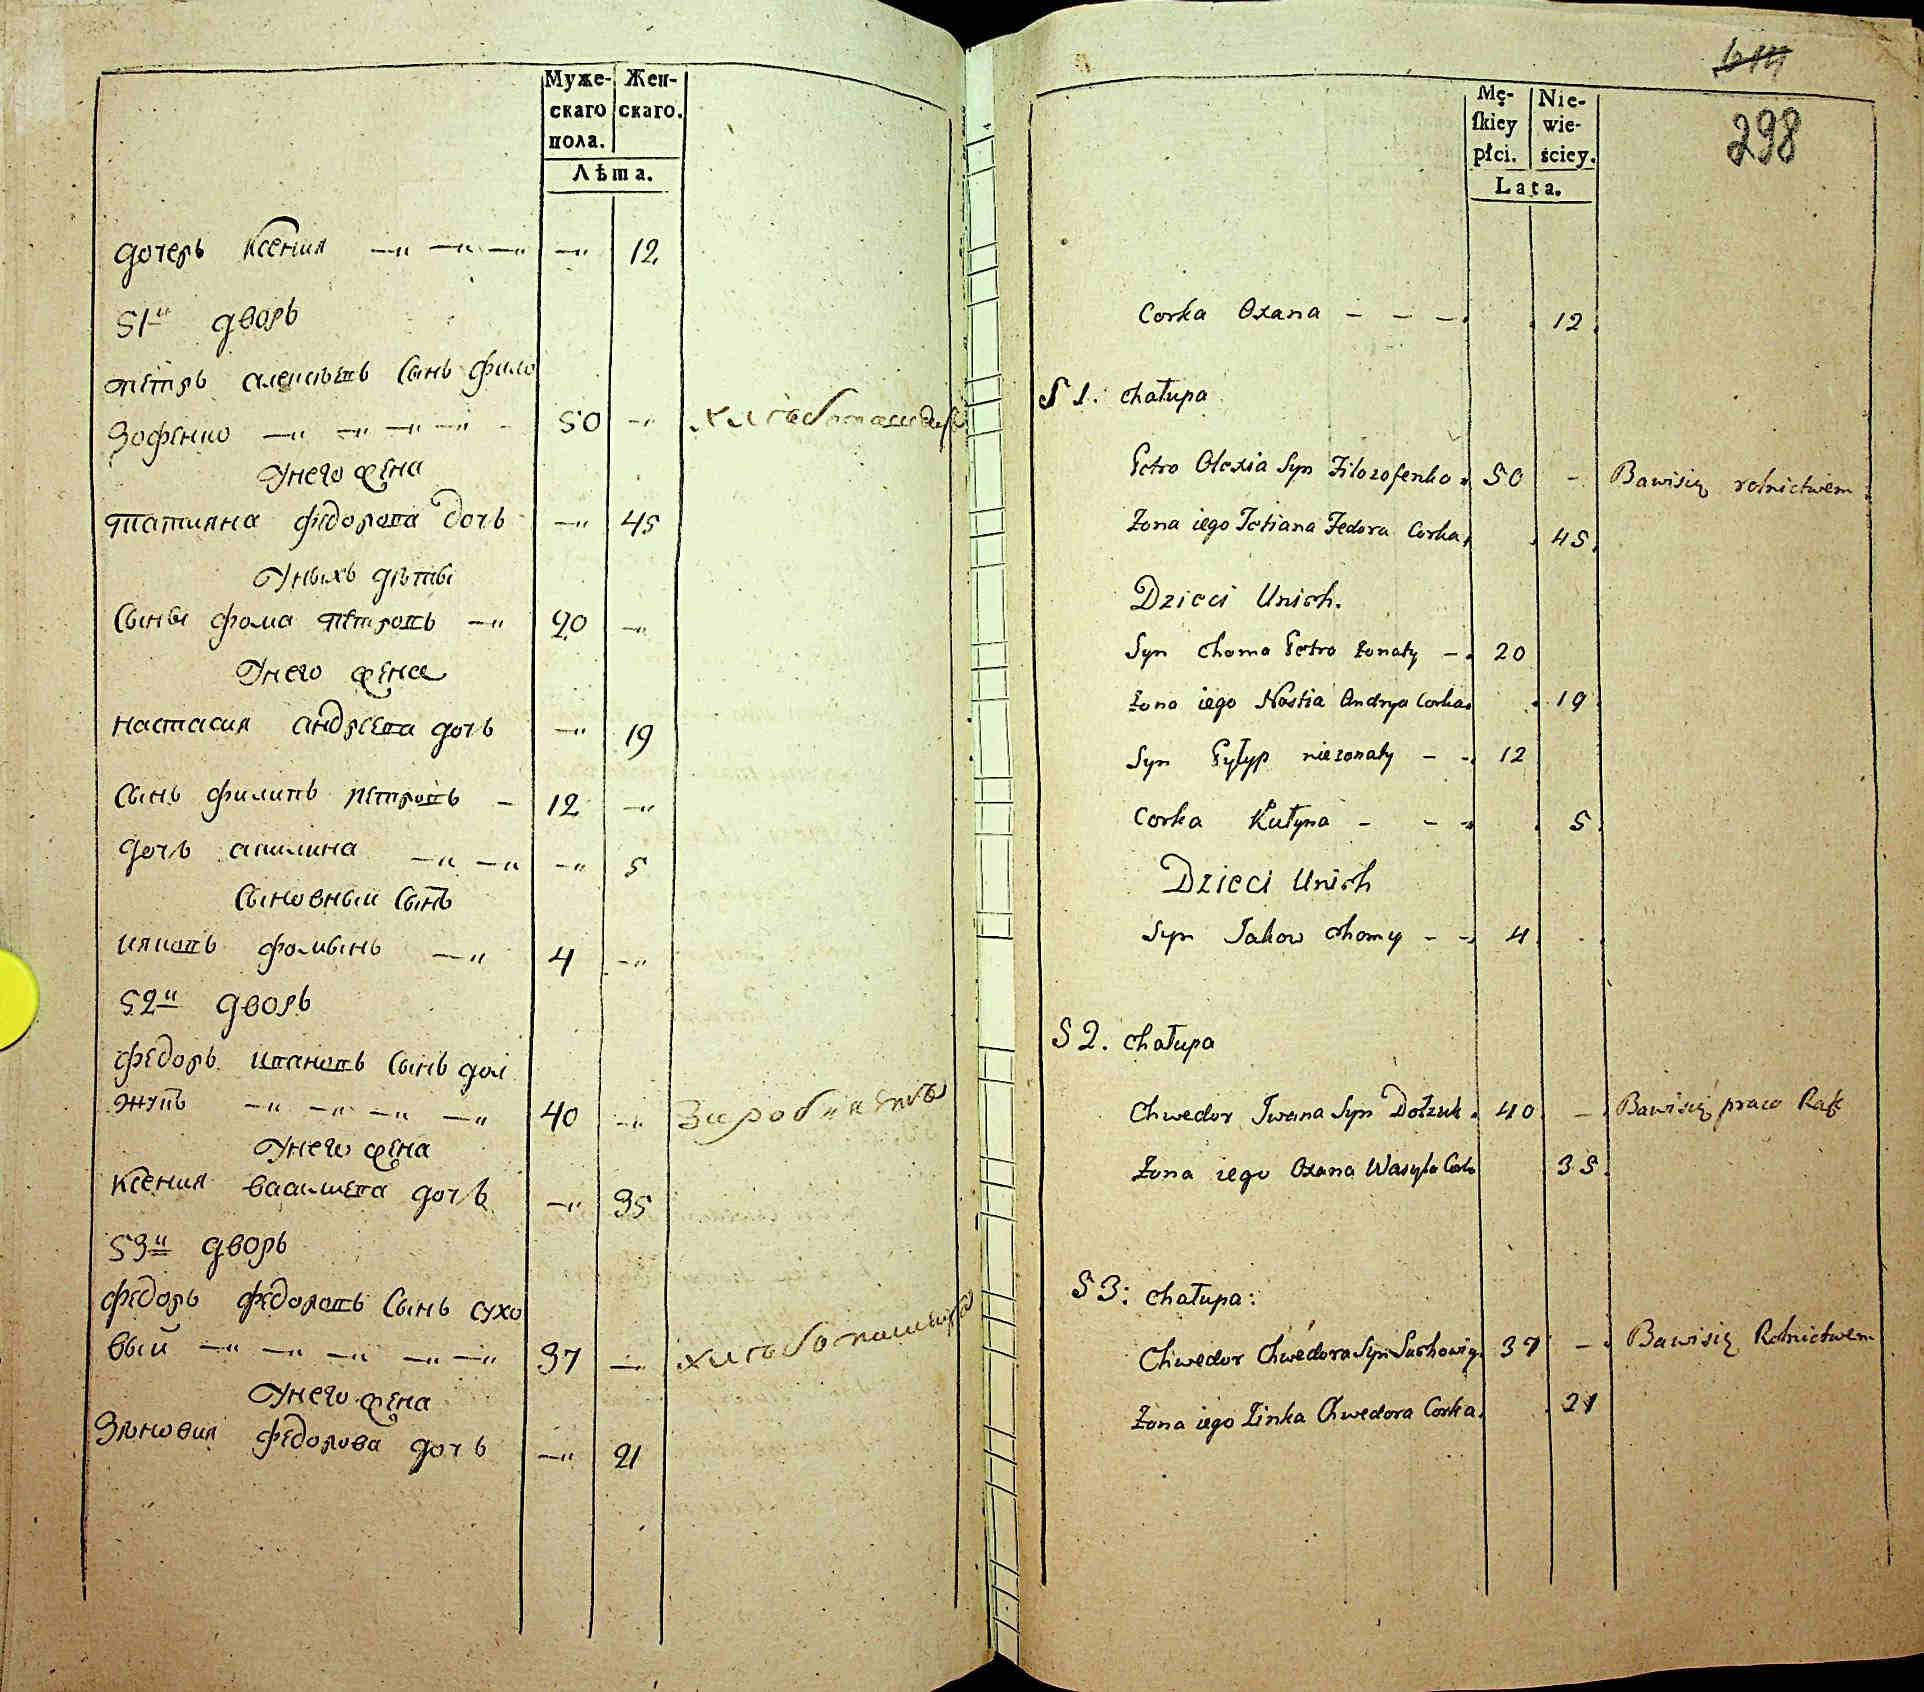 Муже- Жен-
скаго скаго.
пола.
Лѣта.
дочерь Ксения —„ —„ — —„ 12
51й дворъ
петръ алексѣевъ Сынъ фило
Зофенко —„ —„ —„ —„ - 50 —„ хлебопашецъ
Унего жена
татияна федорова дочь —„ 45
Уныхъ дѣты
Сыны фома петровъ —„ 20 —„
Унего жена
настасия андреева дочь —„ 19
Сынъ филипъ петровъ — 12 —„
дочь акилина —„ —„ —„ 5
Сыновный Сынъ
ияковъ фомынъ —„ 4 —„
52й дворъ
федоръ ивановъ Сынъ дол
жукъ —„ —„ —„ —„ 40 —„
Унего жена
Ксения василиева дочь —„ 35
53й дворъ
федоръ федоровъ Сынъ сухо
вый —„ —„ —„ —„ —„ 37 —„ хлебопашецъ
Унего жена
Зѣновия федорова дочь —„ 21
614
298
Mę- Nie-
ſkiey wie-
płci. ściey.
Lata.
Corka Oxana — — — 12
51. chałupa
Petro Olexia Syn Filozofenko 50 - Bawisię rolnictwem
Żona iego Tetiana Fedora Corka 45
Dzieci Unich.
Syn Choma Petro żonaty — 20
Żona iego Nastia Andrya Corka 19
Syn Pyłyp nieżonaty - - 12
Corka Kułyna - - - 5
Dzieci Unich
Syn Jakow Chomy - - 4 -
52. chałupa
Chwedor Iwana Syn Dołżuk 40 — Bawisię praco Rąk
Żona iego Oxana Wasyla Cork 35
53: chałupa:
Chwedor Chwedora Syn Suchowiy 37 — Bawisię Rolnictwem
Żona iego Zinka Chwedora Corka 21